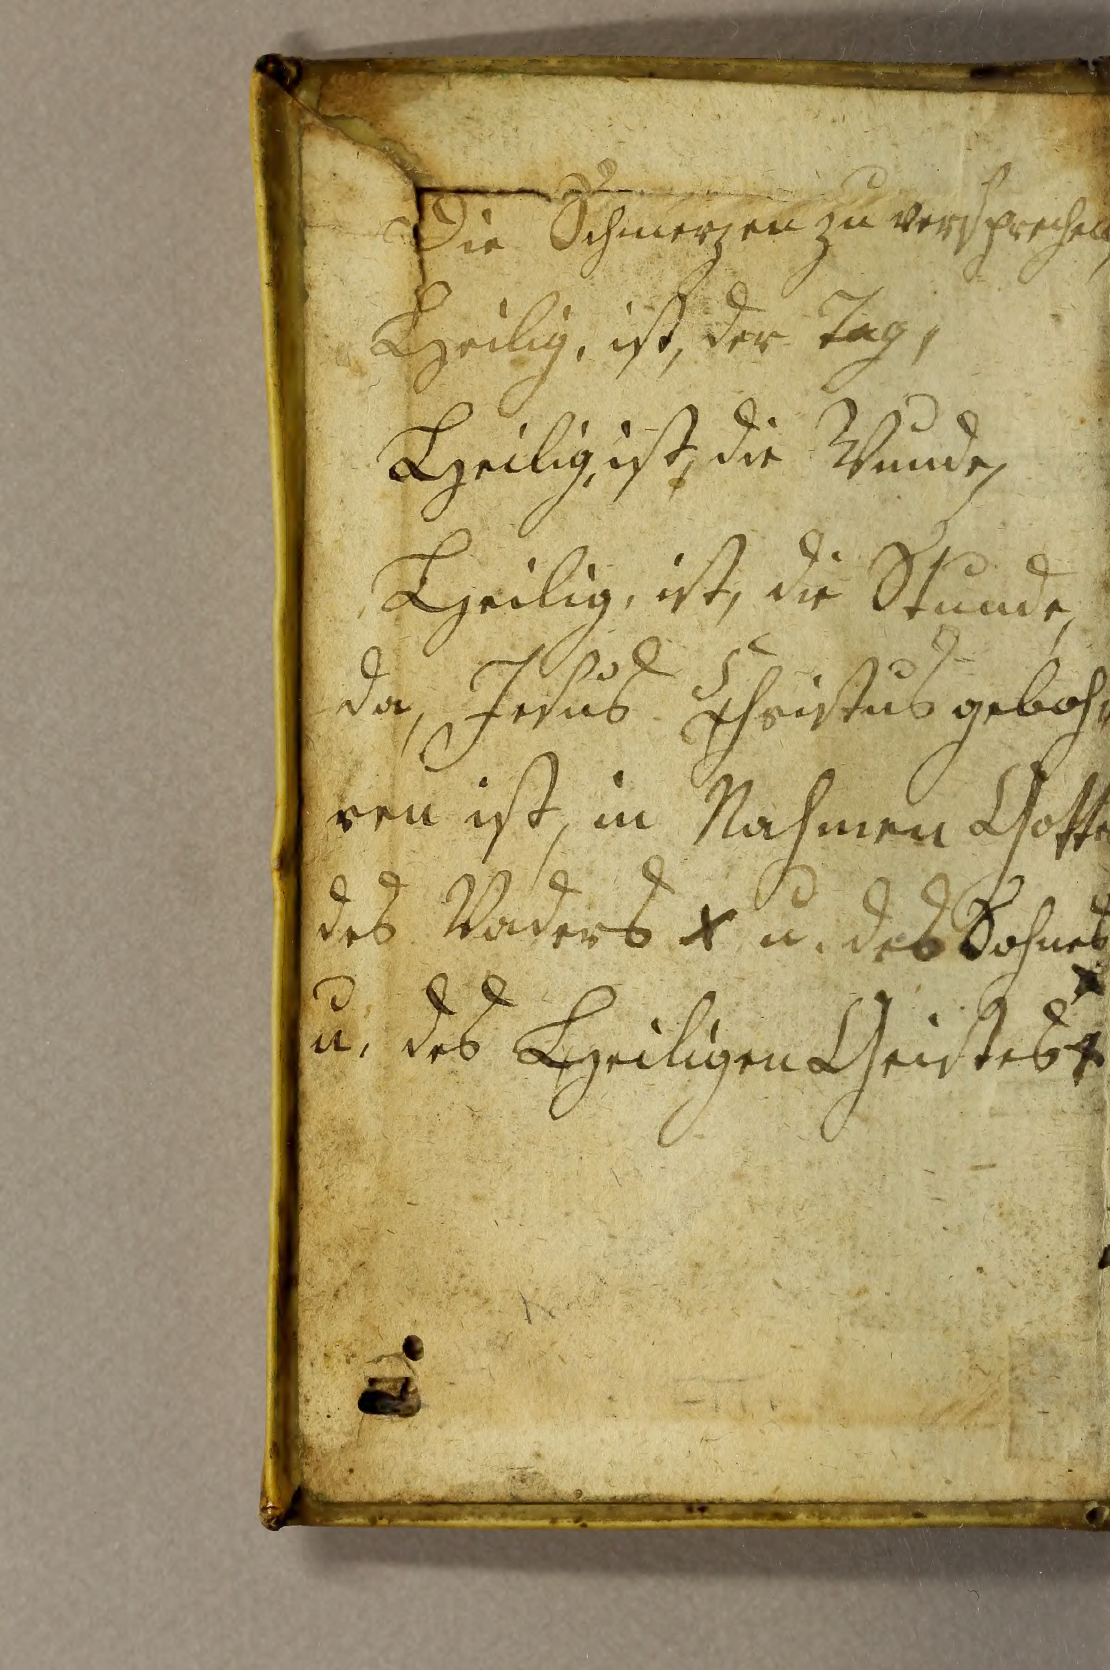 Die Schmerzen zu versprechen,
Heilig, ist, der Tag,
Heilig, ist, die Wunde,
Heilig, ist, die Stunde,
da, Jesus Christus geboh
ren ist, in Nahmen Gotte
des Vaders x u. des Sohnes
x
u. des Heiligen Geistes x